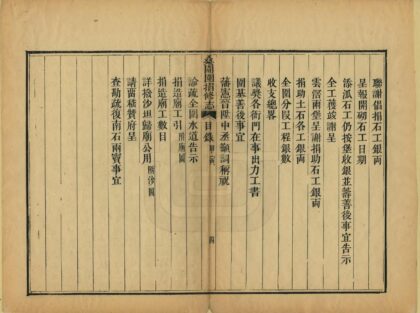 聯謝倡捐石工銀兩
呈報開砌石工日期
添泒石工仍按堡收銀並籌善後事宜告示
全工葳竣謝呈
雲雷兩堡呈謝捐助石工銀兩
捐助土石各工銀兩
全圍分叚工程銀數
收支總畧
議獎各衙門在事出力工書
圍基善後事宜
藩憲晉陞中丞顓詞稱祝
桑園圍捐修志 目錄
四
論疏全圍水道告示
捐造廟工引 附廟圖
捐造廟工數目
詳撥沙坦歸廟公用 附沙圖
請薦穢贊府呈
查勘疏復南石兩竇事宜